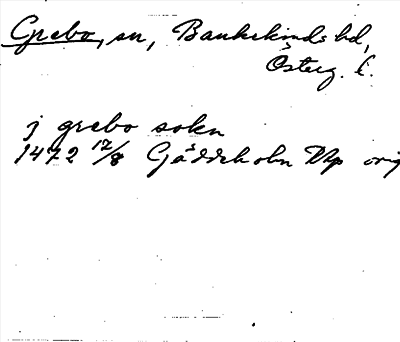 Grebo, sn, Bankekinds hd,
Österg. l.
j grebo sokn
1472 12/8 Gäddeholm Np orig